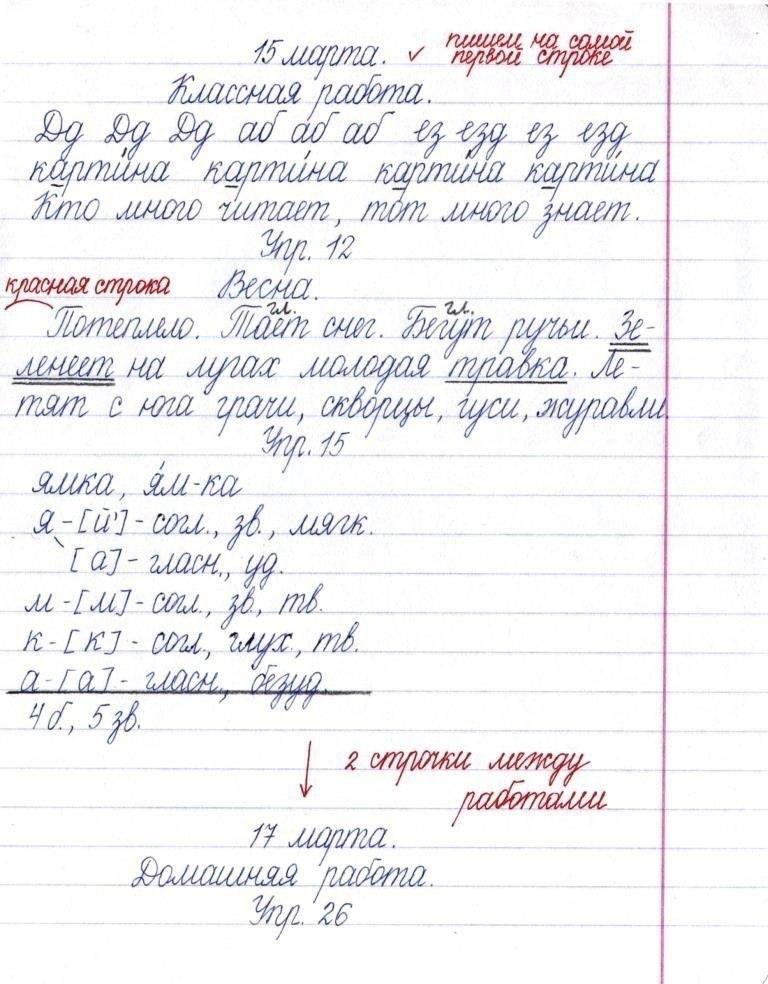 15 марта. ✓ пишем на самой
первой строке
Классная работа.
Дд Дд Дд аб аб аб ез езд ез езд
карти́на карти́на карти́на карти́на
Кто много читает, тот много знает.
Упр. 12
красная строка Весна.
гл. гл.
Потеплело. Тает снег. Бегут ручьи. Зе-
ленеет на лугах молодая травка. Ле-
тят с юга грачи, скворцы, гуси, журавли.
Упр. 15
ямка, я́м-ка
я - [й'] - согл., зв., мягк.
[а] - гласн., уд.
м - [м] - согл., зв., тв.
к - [к] - согл., глух., тв.
а - [а] - гласн., безуд.
4 б., 5 зв.
2 строчки между
работами
17 марта.
Домашняя работа.
Упр. 26